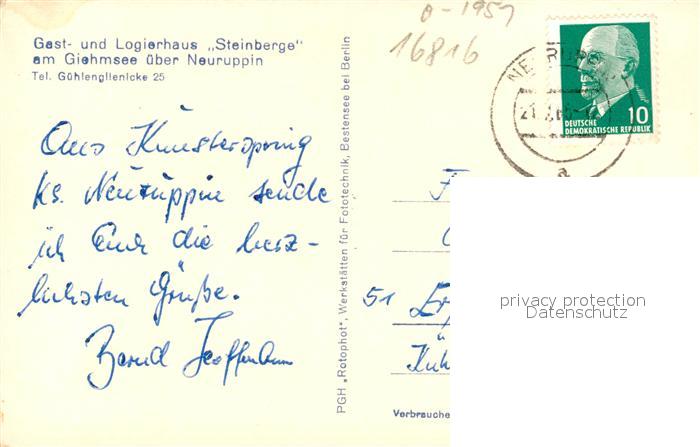 o-1957
16816
Gast- und Logierhaus „Steinberge"
am Giehmsee über Neuruppin
Tel. Gühlenglienicke 25
NEURUPPIN
10
DEUTSCHE
DEMOKRATISCHE REPUBLIK
a
Aus Kunsterspring
Ks. Neuruppin sende
ich Euch die herz-
lichsten Grüße.
Bernd
PGH „Rotophot", Werkstätten für Fototechnik, Bestensee bei Berlin
F
51
Verbrauche
privacy protection
Datenschutz